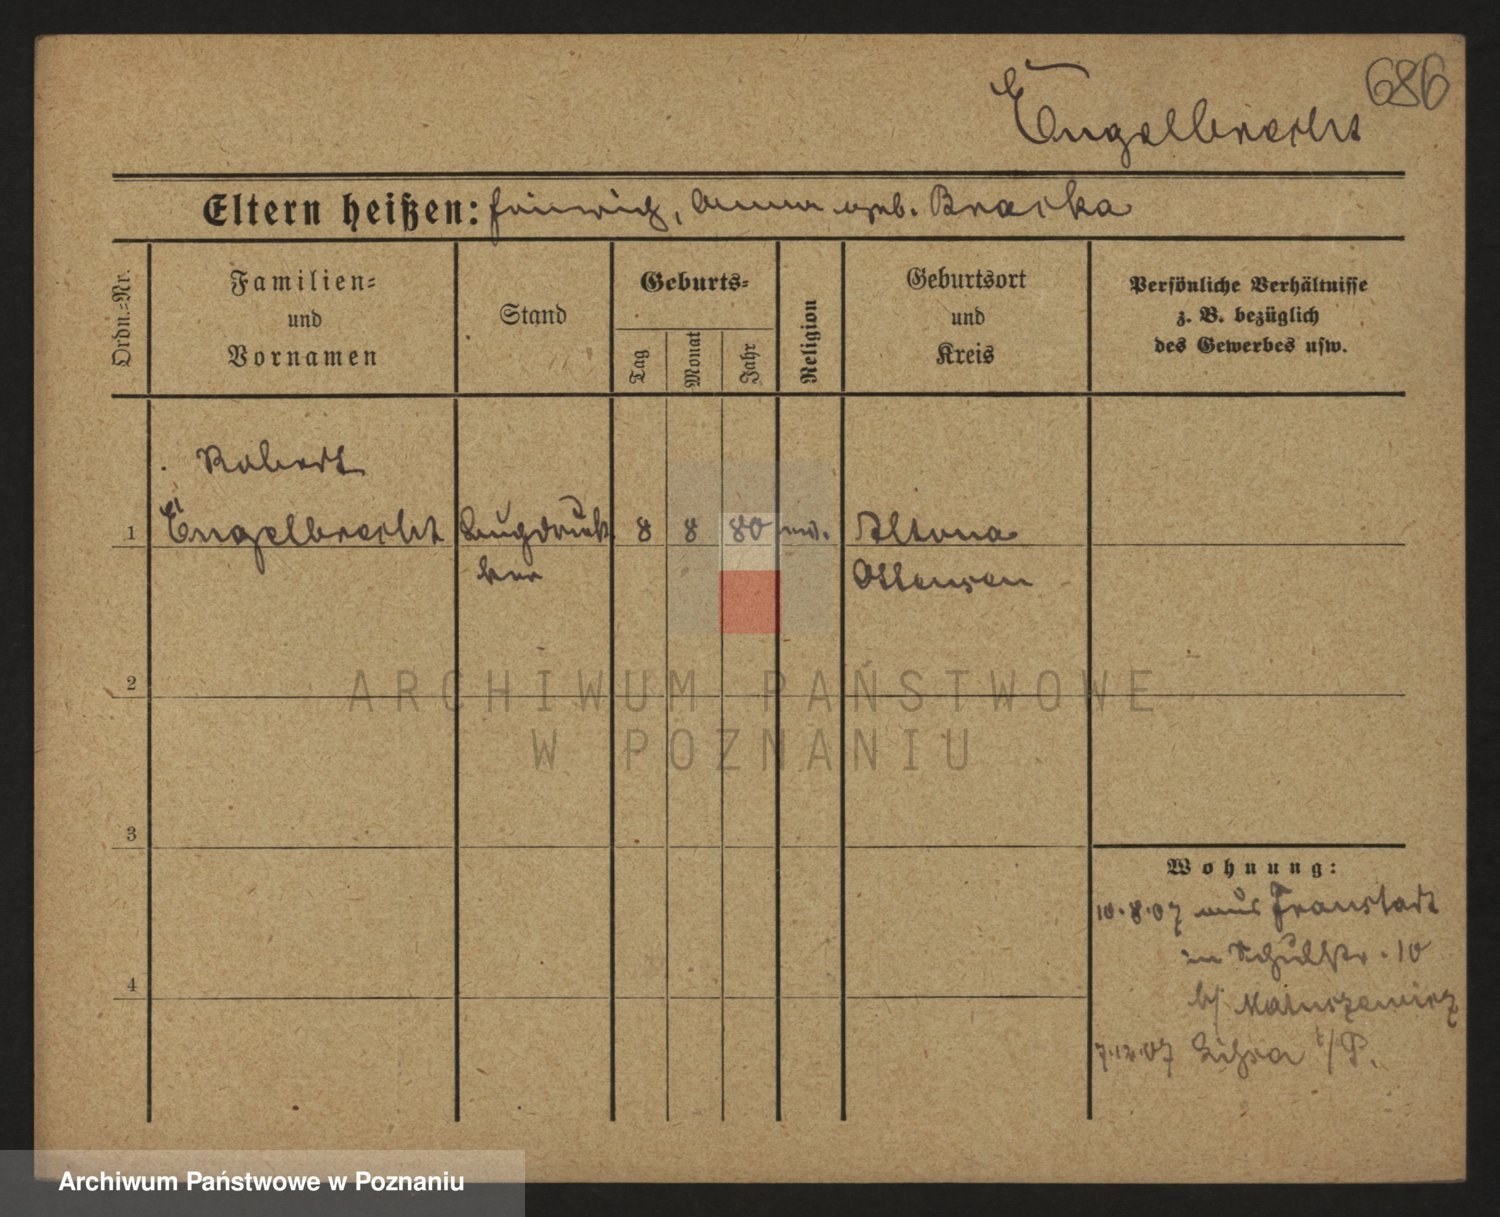 686
Engelbrecht
Eltern heißen: Heinrich, Anna geb. Bracka
Ordn.=Nr.
Familien=
und
Vornamen
Stand
Geburts=
Tag
Monat
Jahr
Religion
Geburtsort
und
Kreis
Persönliche Verhältnisse
z. B. bezüglich
des Gewerbes usw.
Robert
1 Engelbrecht 8 8 80 ev. Altona
Ottensen
2
ARCHIWUM PAŃSTWOWE
W POZNANIU
3
Wohnung:
10.8.07 aus Fraustadt
in Schulstr. 10
4
b/ Matuszewicz
7.12.07 i/P.
Archiwum Państwowe w Poznaniu